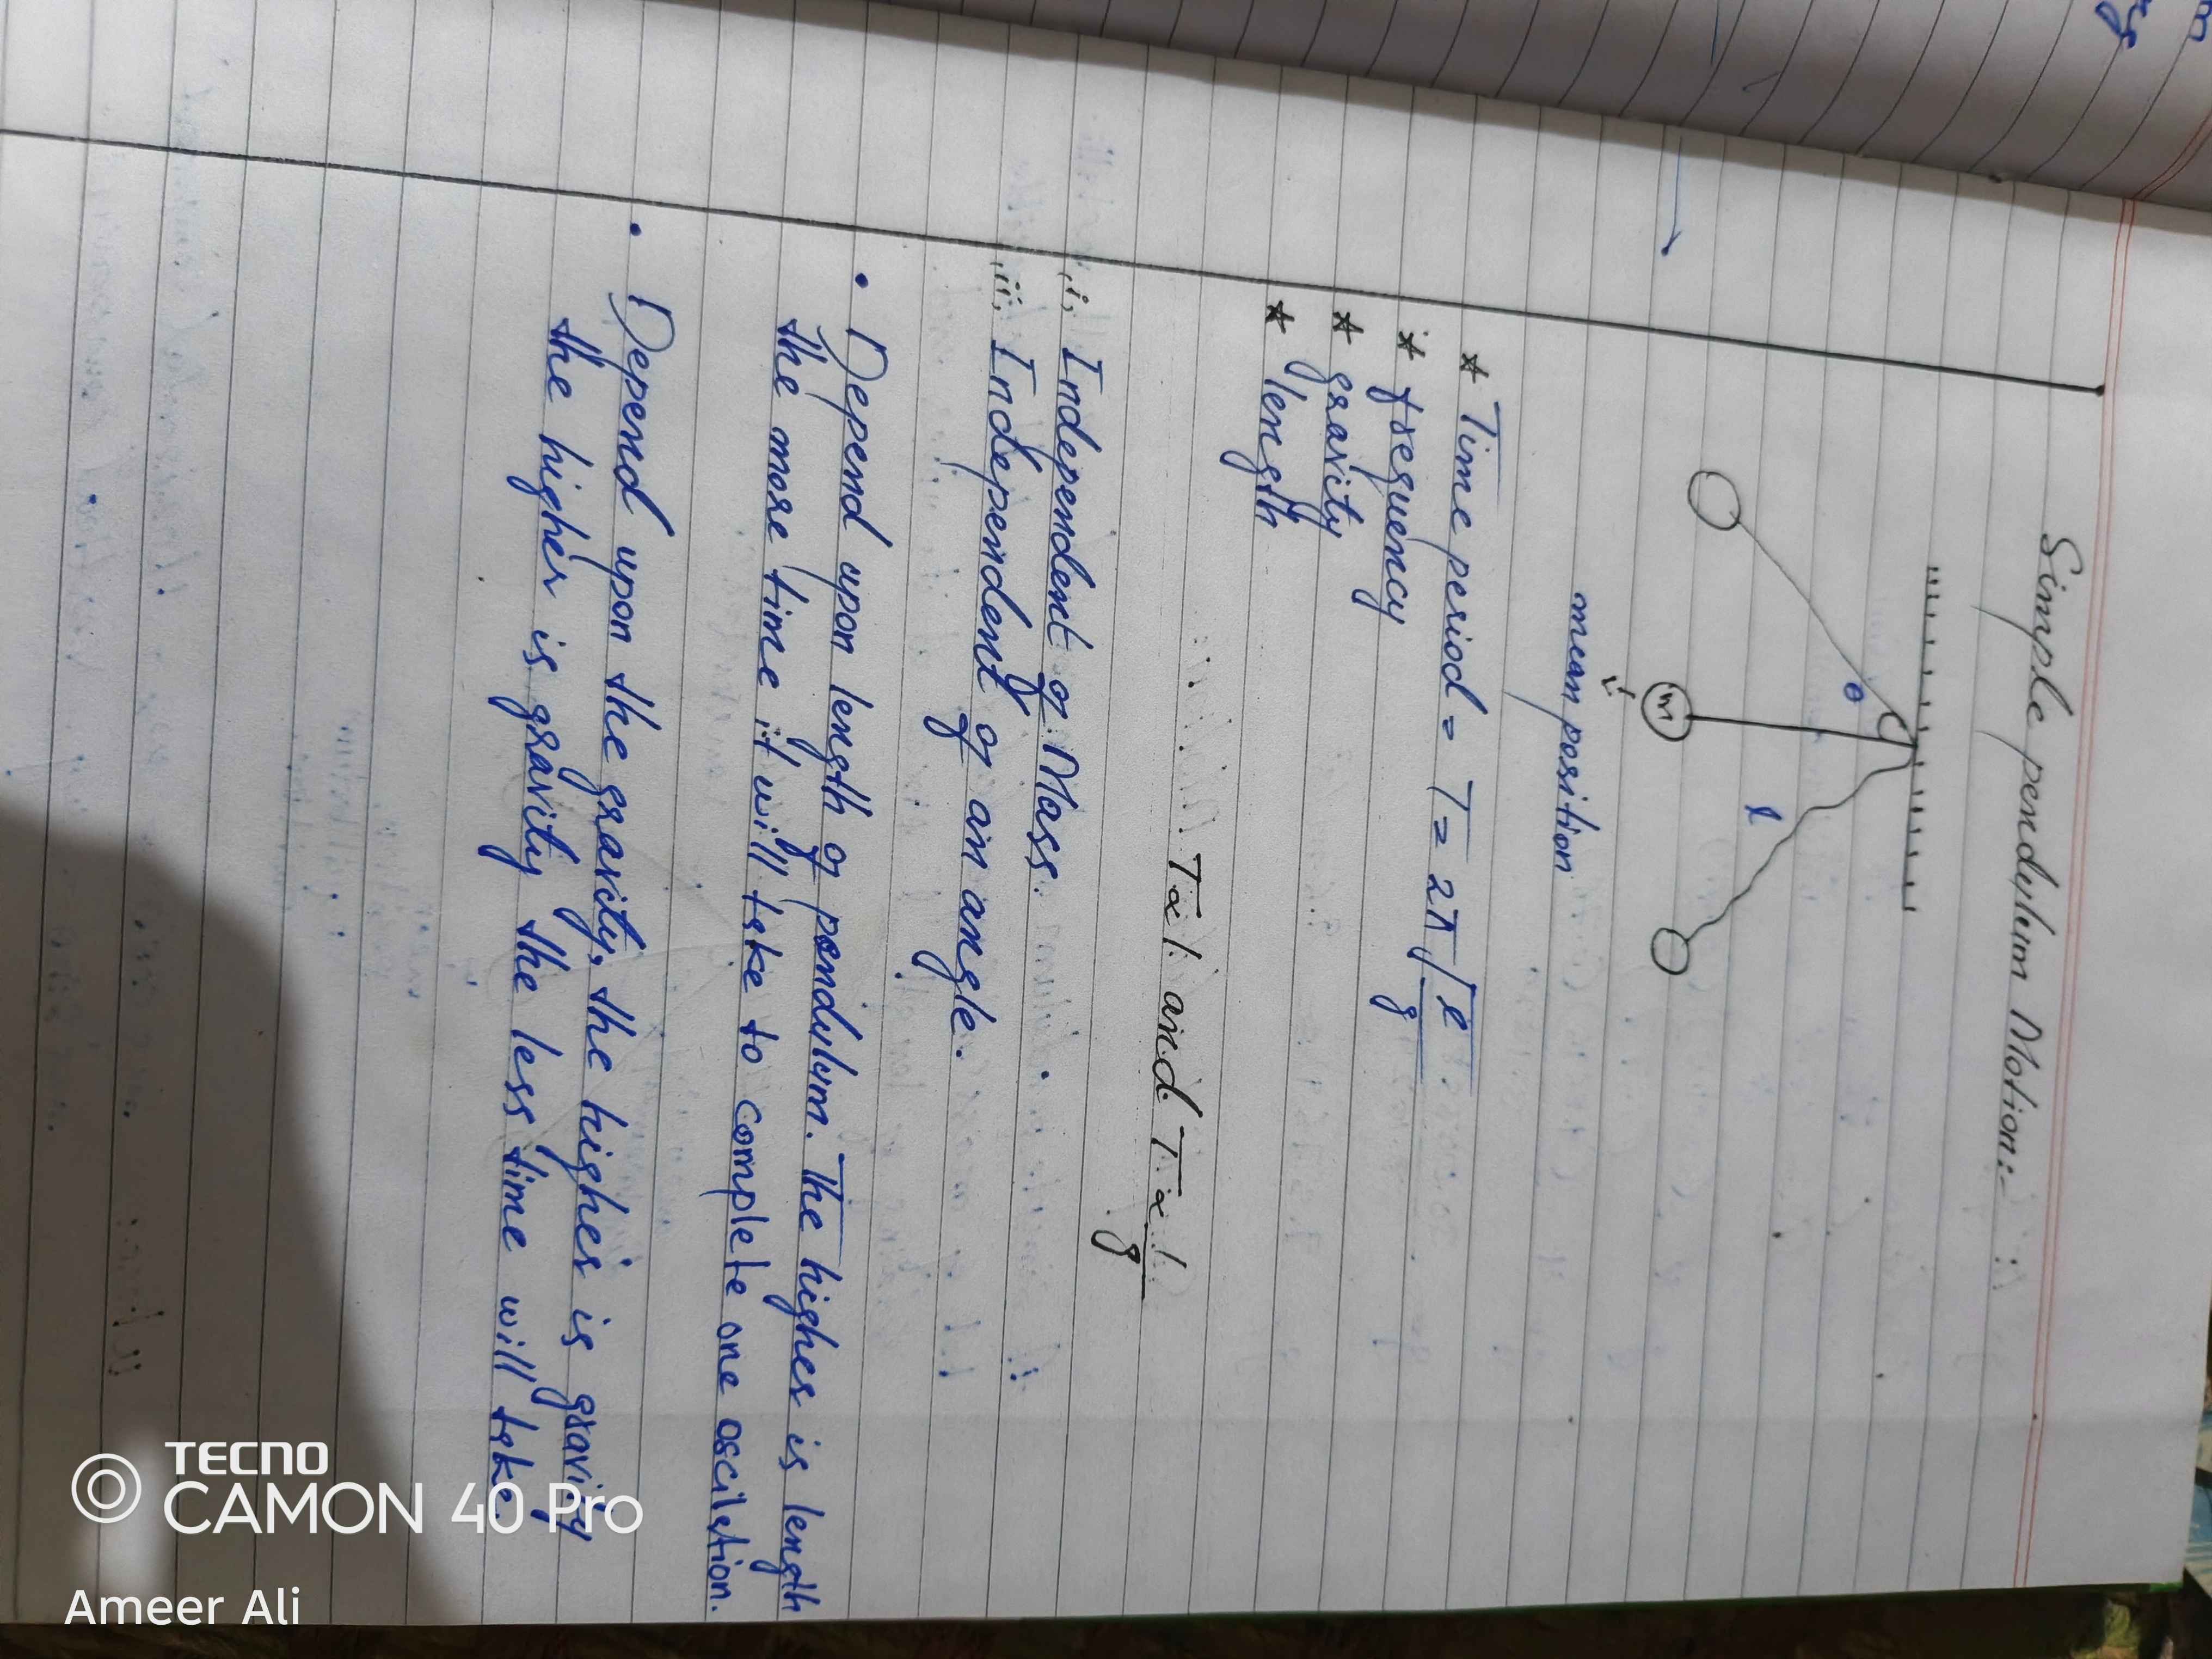 m
ng
Simple pendulum Motion:-
θ
l
m
mean position
* Time period = T = 2π√l/g
* frequency
* gravity
* length
T∝l and T∝1/g
i, Independent of Mass.
ii, Independent of an angle.
• Depend upon length of pendulum. The higher is length
the more time it will take to complete one oscilation.
• Depend upon the gravity, the higher is gravity
the higher is gravity the less time will take.
TECNO
CAMON 40 Pro
Ameer Ali